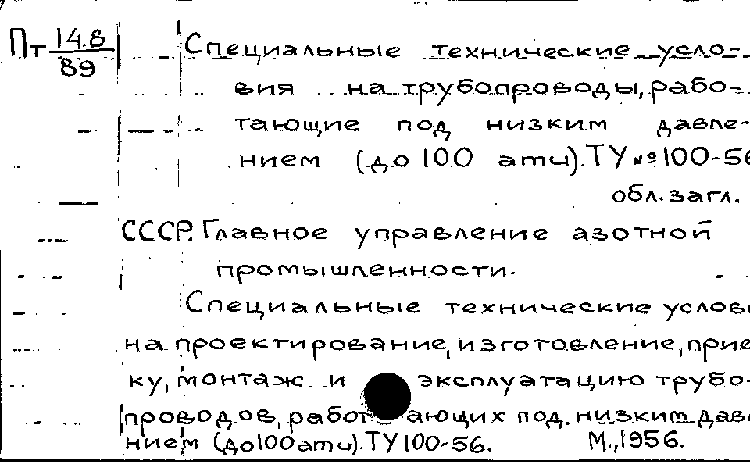 Пт 14.8 Специальные технические усло-
89
вия на трубопроводы, рабо-
тающие под низким давле-
нием (до 100 ати). ТУ № 100-56
обл. загл.
СССР. Главное управление азотной
промышленности.
Специальные технические услов
на проектирование, изготовление, прие
ку, монтаж и эксплуатацию трубо-
проводов, работающих под. низким дав
нием (до 100 ати). ТУ 100-56. М., 1956.